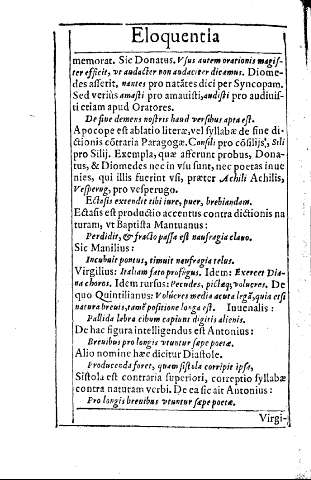 Eloquentia
memorat. Sic Donatus. Vsus autem orationis magis-
ter efficit, vt audacter non audaciter dicamus. Diome-
des asserit, nantes pro natātes dici per Syncopam.
Sed verius amasti pro amauisti, audisti pro audiuis-
ti etiam apud Oratores.
De fine demens nostris haud versibus apta est.
Apocope est ablatio literæ, vel syllabæ de fine di-
ctionis cōtraria Paragogæ. Consili pro cōsilijs, Sili
pro Silij. Exempla, quæ afferunt probus, Dona-
tus, & Diomedes nec in vsu sunt, nec poetas inue
nies, qui illis fuerint vsi, præter Achili Achilis,
Vesperug, pro vesperugo.
Ectasis extendit tibi iure, puer, brebiandam.
Ectasis est productio accentus contra dictionis na
turam, vt Baptista Mantuanus:
Perdidit, & fracto passa est naufragia clauo.
Sic Manilius:
Incubuit pontus, timuit naufragia telus.
Virgilius: Italiam fato profugus. Idem: Exercet Dia-
na choros. Idem rursus: Pecudes, pictæq; volucres. De
quo Quintilianus: Volucres media acuta legā, quia etsi
natura breuis, tamē positione longa est. Iuuenalis:
Pallida labra cibum capiunt digitis alienis.
De hac figura intelligendus est Antonius:
Breuibus pro longis vtuntur sæpe poetæ.
Alio nomine hæc dicitur Diastole.
Producenda foret, quam sistola corripit ipsa,
Sistola est contraria superiori, correptio syllabæ
contra naturam verbi. De ea sic ait Antonius:
Pro longis breuibus vtuntur sæpe poetæ.
Virgi-